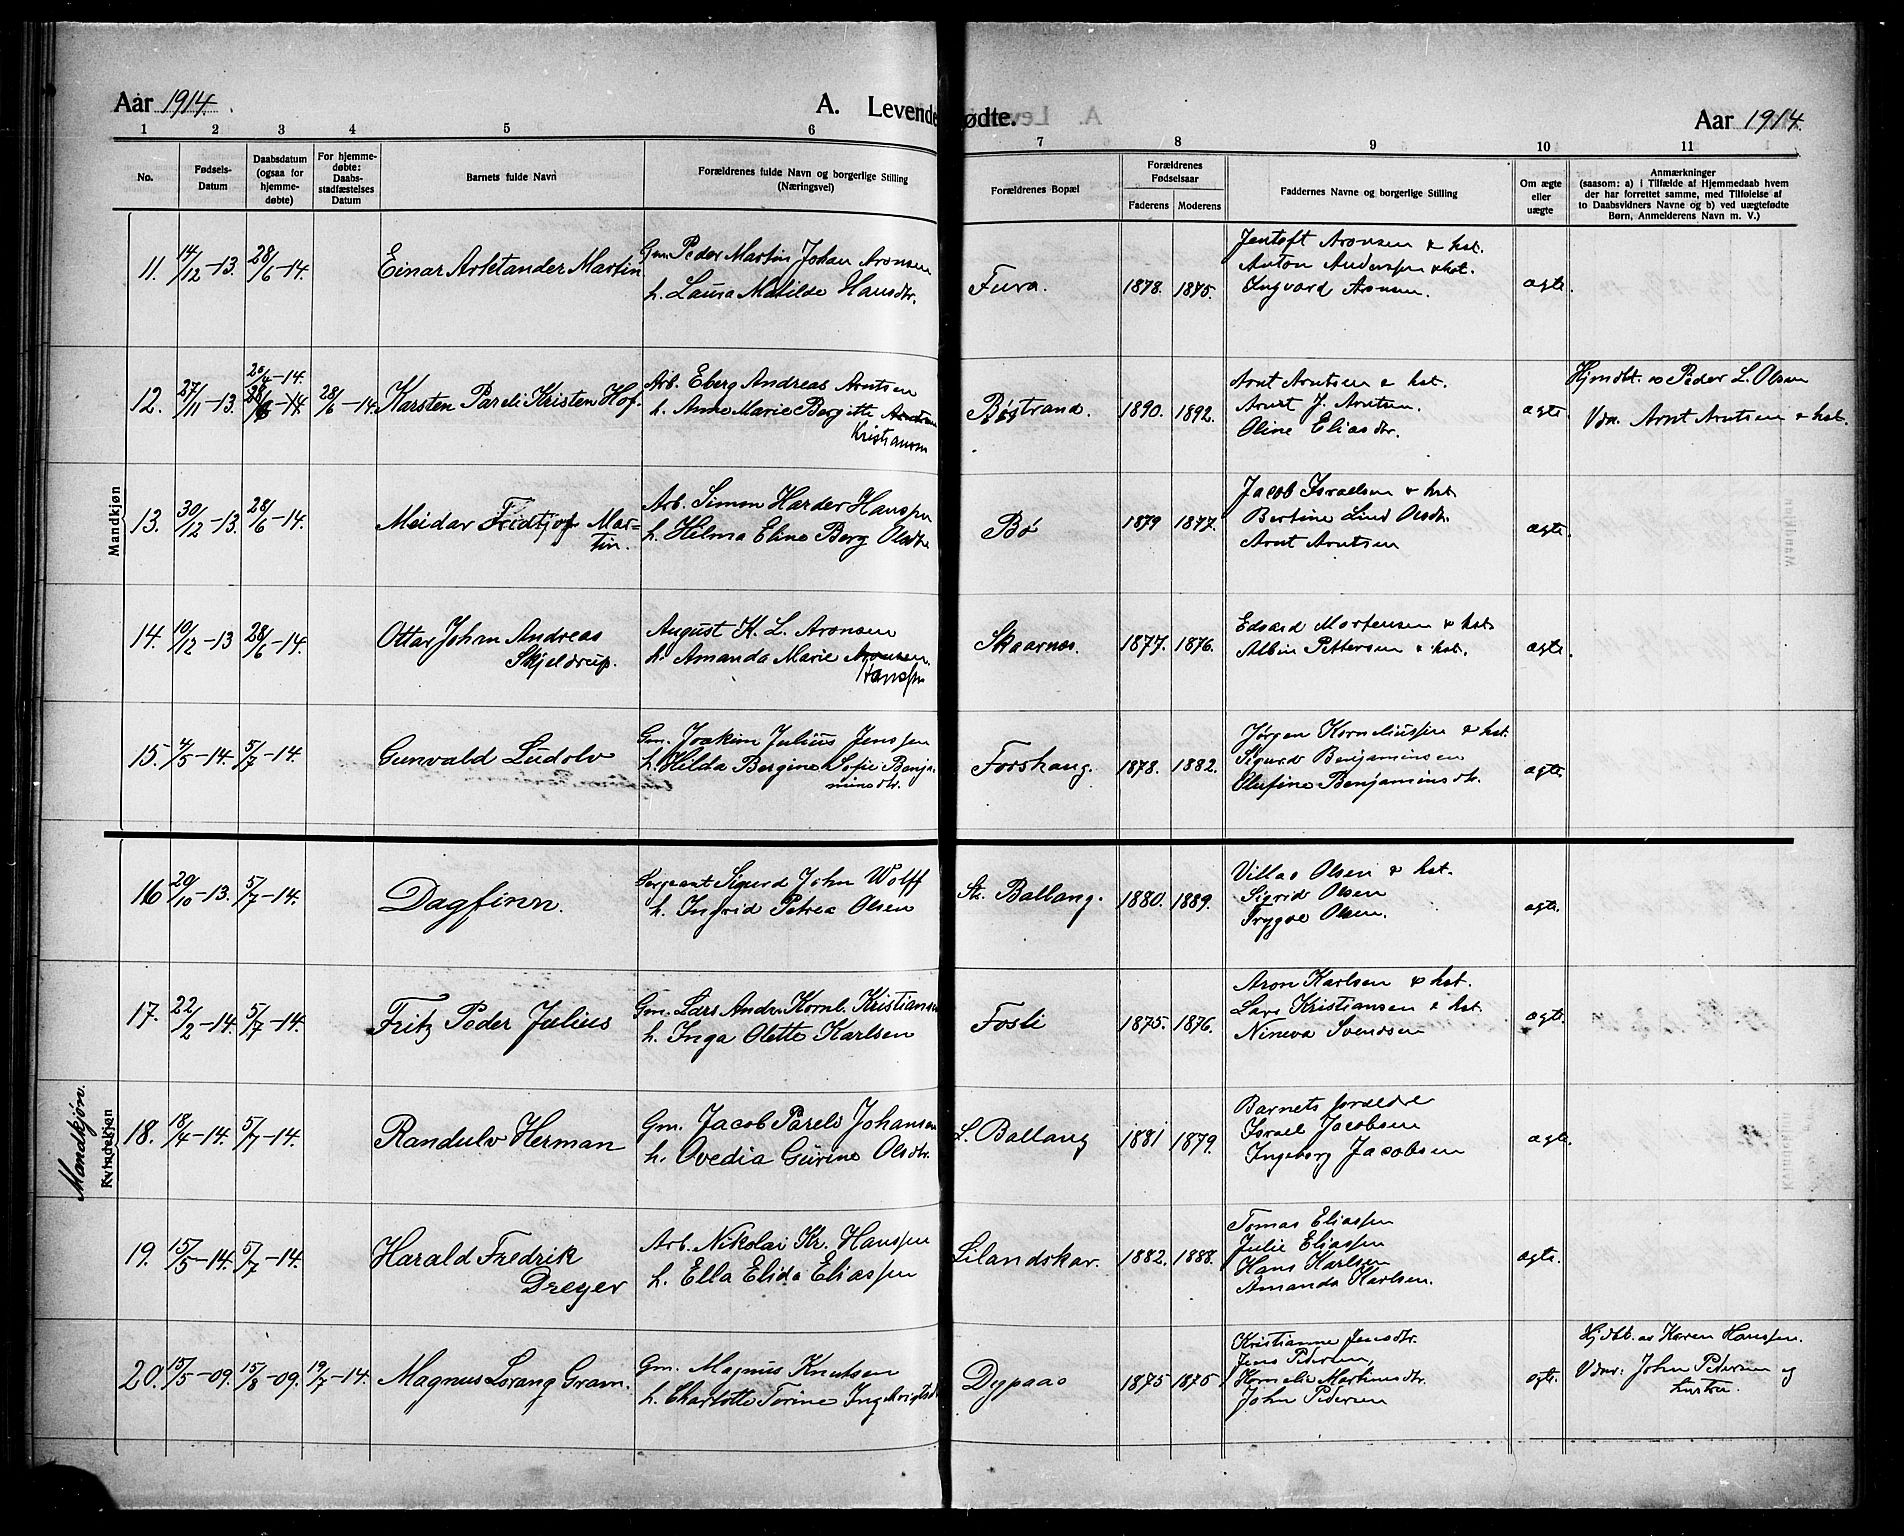 Aar 1914. A. Levendefødte. Aar 1914.
1 2 3 4 5 6 7 8 9 10 11
No.
Fødsels-Datum
Daabsdatum (ogsaa for hjemme-døbte)
For hjemme-døbte: Daabs-stadfæstelses Datum
Barnets fulde Navn
Forældrenes fulde Navn og borgerlige Stilling (Næringsvei)
Forældrenes Bopæl
Forældrenes Fødselsaar
Faderens Moderens
Faddernes Navne og borgerlige Stilling
Om ægte eller uægte
Anmærkninger
(saasom: a) i Tilfælde af Hjemmedaab hvem
der har forrettet samme, med Tilføielse af
to Daabsvidners Navne og b) ved uægtefødte
Børn, Anmelderens Navn m. V.)
Mandkjøn
11. 14/12-13. 28/6-14. Einar Arktander Martin
Gm. Peder Martin Johan Aronsen
h. Laura Matilde Hansdtr.
Fura. 1878. 1875.
Jentoft Aronsen & hst.
Anton Anderssen & hst.
Ingvard Aronsen.
ægte.
12. 27/11-13. 20/4-14. 28/6-14 28/6-14 Karsten Pareli Kristen Hof.
Arb. Eberg Andreas Arntsen
h. Anne Marie Bergitte Arntsen
Kristiansen
Bøstrand. 1890. 1892.
Arnt Arntsen & hst.
Arnt J. Arntsen.
Oline Eliasdtr.
ægte
Hjmdbt. av Peder L. Olsen
Vdn. Arnt Arntsen & hst.
13. 30/12-13. 28/6-14. Meidar Fridtjof Mar-
tin.
Arb. Simon Harder Hanssen
h. Hilma Eline Berg Olsdtr
Bø 1879 1877.
Jacob Israelsen & hst
Bertine Lind Olsdtr.
Arnt Arntsen
ægte.
14. 10/12-13 28/6-14. Ottar Johm Andreas
Skjeldrup.
August K. L. Aronsen
h. Amanda Marie Aronsen.
Hanssen
Skaarnes. 1877. 1876.
Edvard Mortensen & hst
Albin Pettersen & hst.
ægte.
15. 4/5-14. 5/7-14. Gunvald Ludolv
Gm. Joakim Julius Jenssen
h. Hilda Bergine Sofie Benja-
minsdtr.
Forshaug. 1878. 1882.
Jørgen Korneliussen & hst.
Sigurd Benjaminsen
Olufine Benjaminsdtr.
ægte.
Mandkjøn.
Kvindekjøn
16 20/10-13. 5/7-14. Dagfinn.
Sergeant Sigurd John Wolff
h. Ingrid Petrea Olsen
St. Ballang. 1880. 1889.
Villas Olsen & hst.
Sigrid Olsen
Trygve Olsen.
ægte.
17. 22/2-14. 5/7-14. Fritz Peder Julius
Gm. Lars Andr. Kornl. Kristiansen
h. Inga Olette Karlsen
Fosli 1875. 1876.
Aron Karlsen & hst.
Lars Kristiansen & hst.
Nineva Svendsen
ægte.
18. 18/4-14. 5/7-14. Randulv Herman
Gm. Jacob Pareli Johansen
h. Ovedia Gurine Olsdtr.
L. Ballang 1881 1879.
Barnets forældre
Israel Jacobsen
Ingeborg Jacobsen
ægte.
19. 15/5-14. 5/7-14. Harald Fredrik
Dreyer
Arb. Nikolai Kr. Hanssen
h. Ella Elida Eliassen
Lilandskar. 1882. 1888.
Tomas Eliassen
Julie Eliassen
Hans Karlsen
Amanda Karlsen.
ægte.
20. 15/5-09. 15/8-09. 19/7-14. Magnus Lorang Gram.
Gm. Magnus Knutsen
h. Charlotte Torine Ingebrigtsdt
Dypaas 1875 1875
Kristianne Jensdtr.
Jens Pedersen,
Kornelie Martinusdtr.
John Pedersen
ægte.
Hjdbt. av Karen Hanssen.
Vdnr: John Pedersen og
hustru.